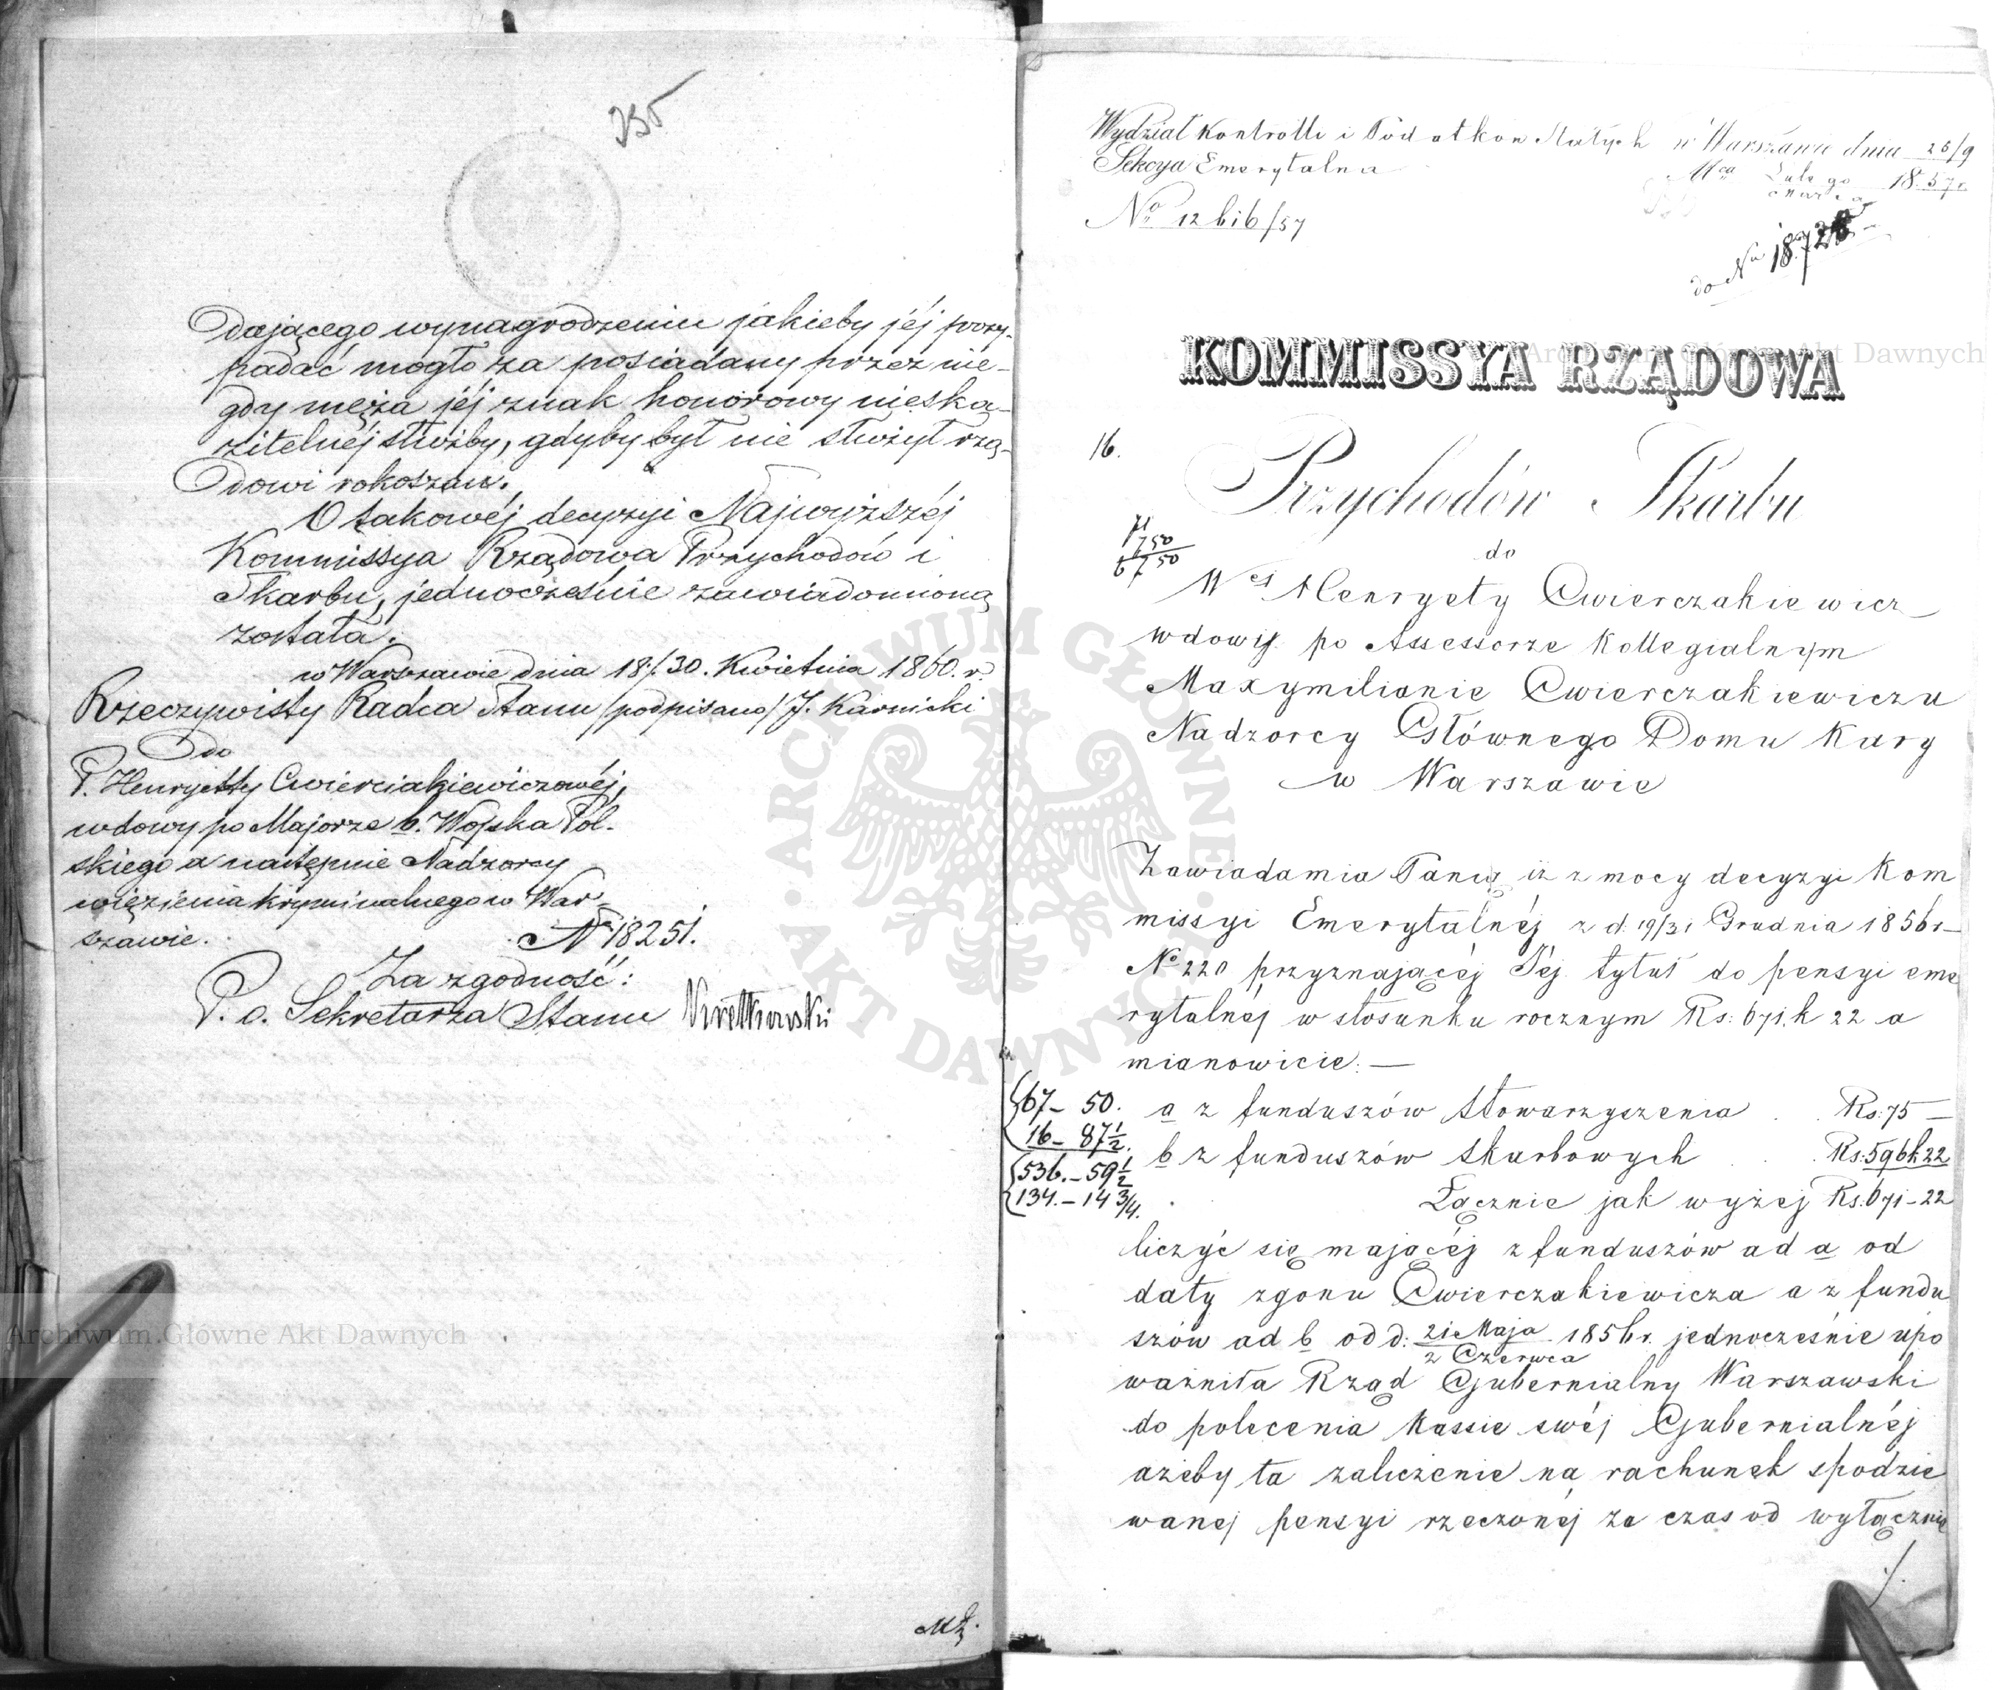 dającego wynagrodzeniu jakieby jéj przy-
padać mogło za posiadany przez nie-
gdy męża jéj znak honorowy nieska-
zitelnéj służby, gdyby był nie służył rzą-
dowi rokoszan.
O takowéj decyzyi Najwyższéj
Kommissya Rządowa Przychodów i
Skarbu, jednocześnie zawiadomioną
została.
w Warszawie dnia 18/30. Kwietnia 1860. r.
Rzeczywisty Radca Stanu /podpisano/ J. Karnicki
do
P. Henryetty Cwierciakiewiczowéj,
wdowy po Majorze b. Wojska Pol-
skiego a następnie Nadzorcy
więzienia kryminalnego w War-
szawie.
N 18251.
Za zgodność:
P. o. Sekretarza Stanu
Wydział Kontrolli i Podatkow Stałych w Warszawie dnia 25/9
Sekcya Emerytalna
Mca Lutego 1857 r.
Marca
No 12616/57
do No
KOMMISSYA RZĄDOWA
16.
Przychodów Skarbu
do
67 50
Wej Henryety Cwierczakiewicz
wdowy po Assessorze Kollegialnym
Maxymilianie Cwierczakiewiczu
Nadzorcy Głównego Domu Kary
w Warszawie
Zawiadamia Panią iż z mocy decyzyi Kom
missyi Emerytalnéj z d. 19/31 Grudnia 1856 r
No 220 przyznającéj Jéj tytuł do pensyi eme
rytalnéj w stosunku rocznym Rs: 671 k 22 a
mianowicie: —
67 – 50. a z funduszów Stowarzyszenia . . Rs: 75 —
16 – 87 1/2.
b z funduszów Skarbowych . . Rs: 596 k 22
536. – 59 1/2
134. – 14 3/4.
Łącznie jak wyżej Rs: 671 – 22
liczyć się mającéj z funduszów ad a od
daty zgonu Cwierczakiewicza a z fundu
szów ad b od d: 21 Maja 1856 r. jednocześnie upo
2 Czerwca
ważniła Rząd Gubernialny Warszawski
do polecenia Kassie swéj Gubernialnéj
ażeby ta zaliczenie na rachunek spodzie
wanej pensyi rzeczonéj za czas od wyłącznie
./.
Archiwum Główne Akt Dawnych
Archiwum Główne Akt Dawnych
ARCHIWUM GŁÓWNE · AKT DAWNYCH ·